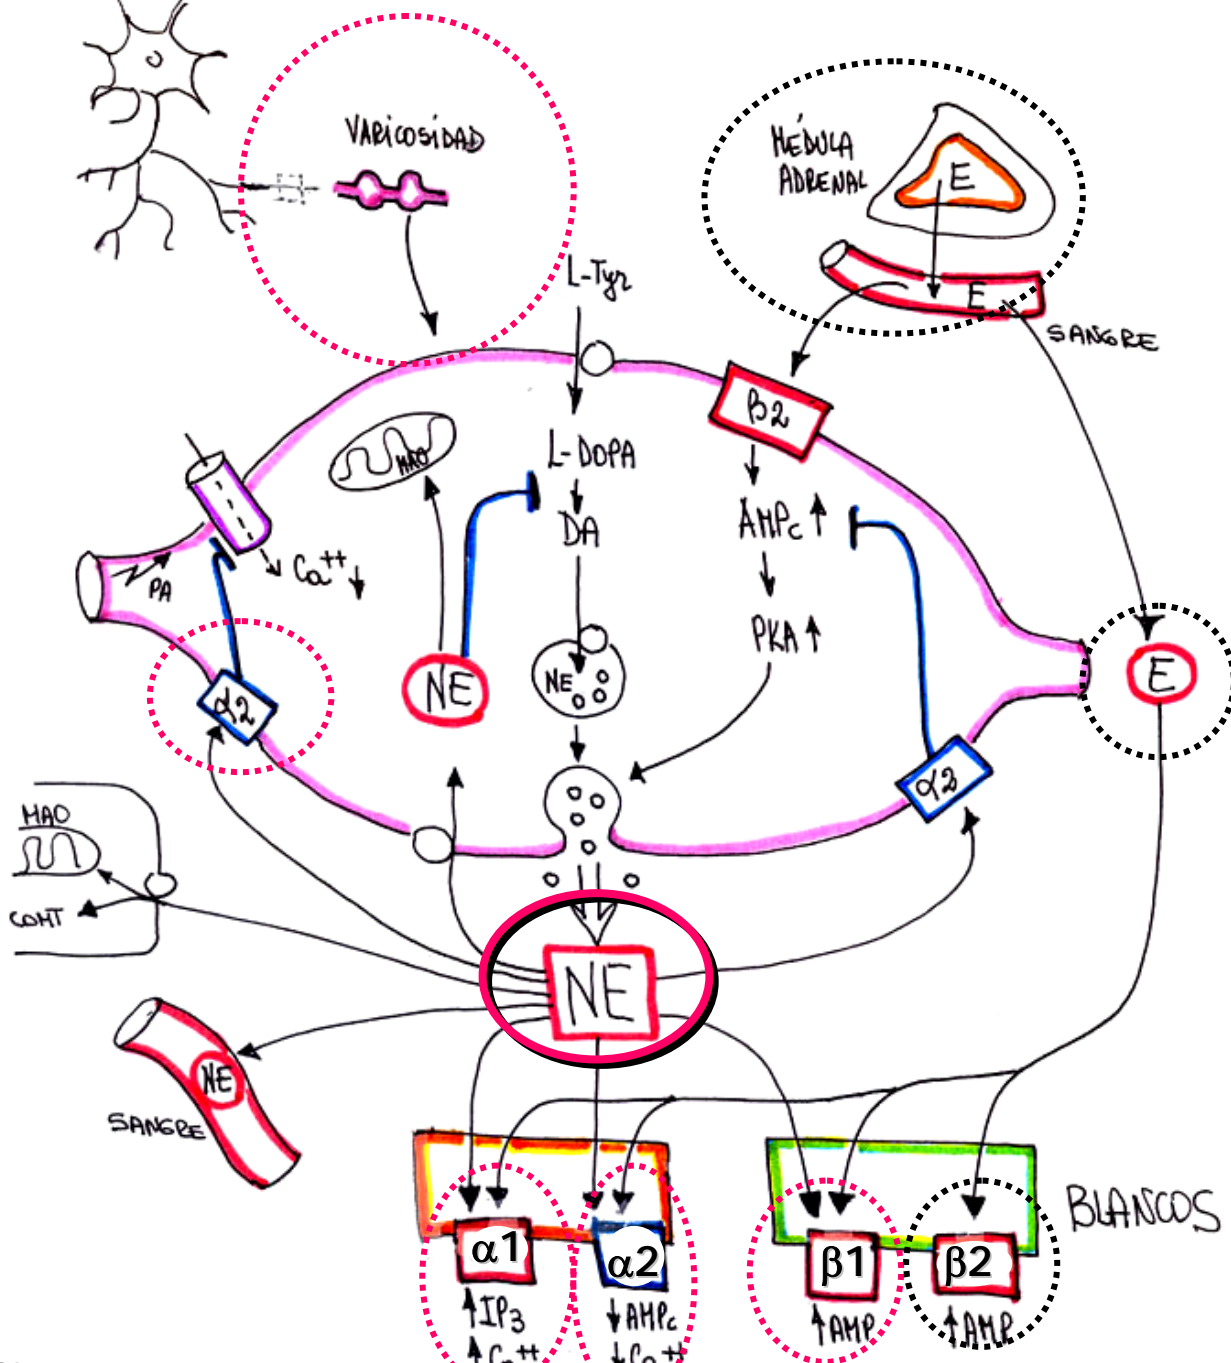 VARICOSIDAD
MÉDULA
ADRENAL
E
E
SANGRE
L-Tyr
β2
MAO
L-DOPA
DA
AMPc ↑
PKA ↑
PA
Ca++ ↓
α2
NE
NE
E
α2
MAO
COMT
NE
NE
SANGRE
BLANCOS
α1
α2
β1
β2
↑IP3
↓AMPc
↑AMP
↑AMP
↑Ca++
↓Ca++